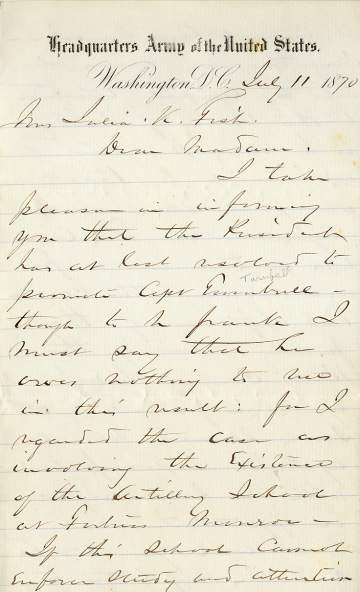 Headquarters Army of the United States.
Washington, D.C. July 11 1870
Mrs Julia K. Fish.
Dear Madam.
I take
pleasure in informing
you that the President
has at last resolved to
promote Capt
though to be frank I
must say that he
owes nothing to me
in this result: for I
regarded the case as
involving the Existence
of the Artillery School
at Fortress Monroe -
If this school cannot
enforce study and attention